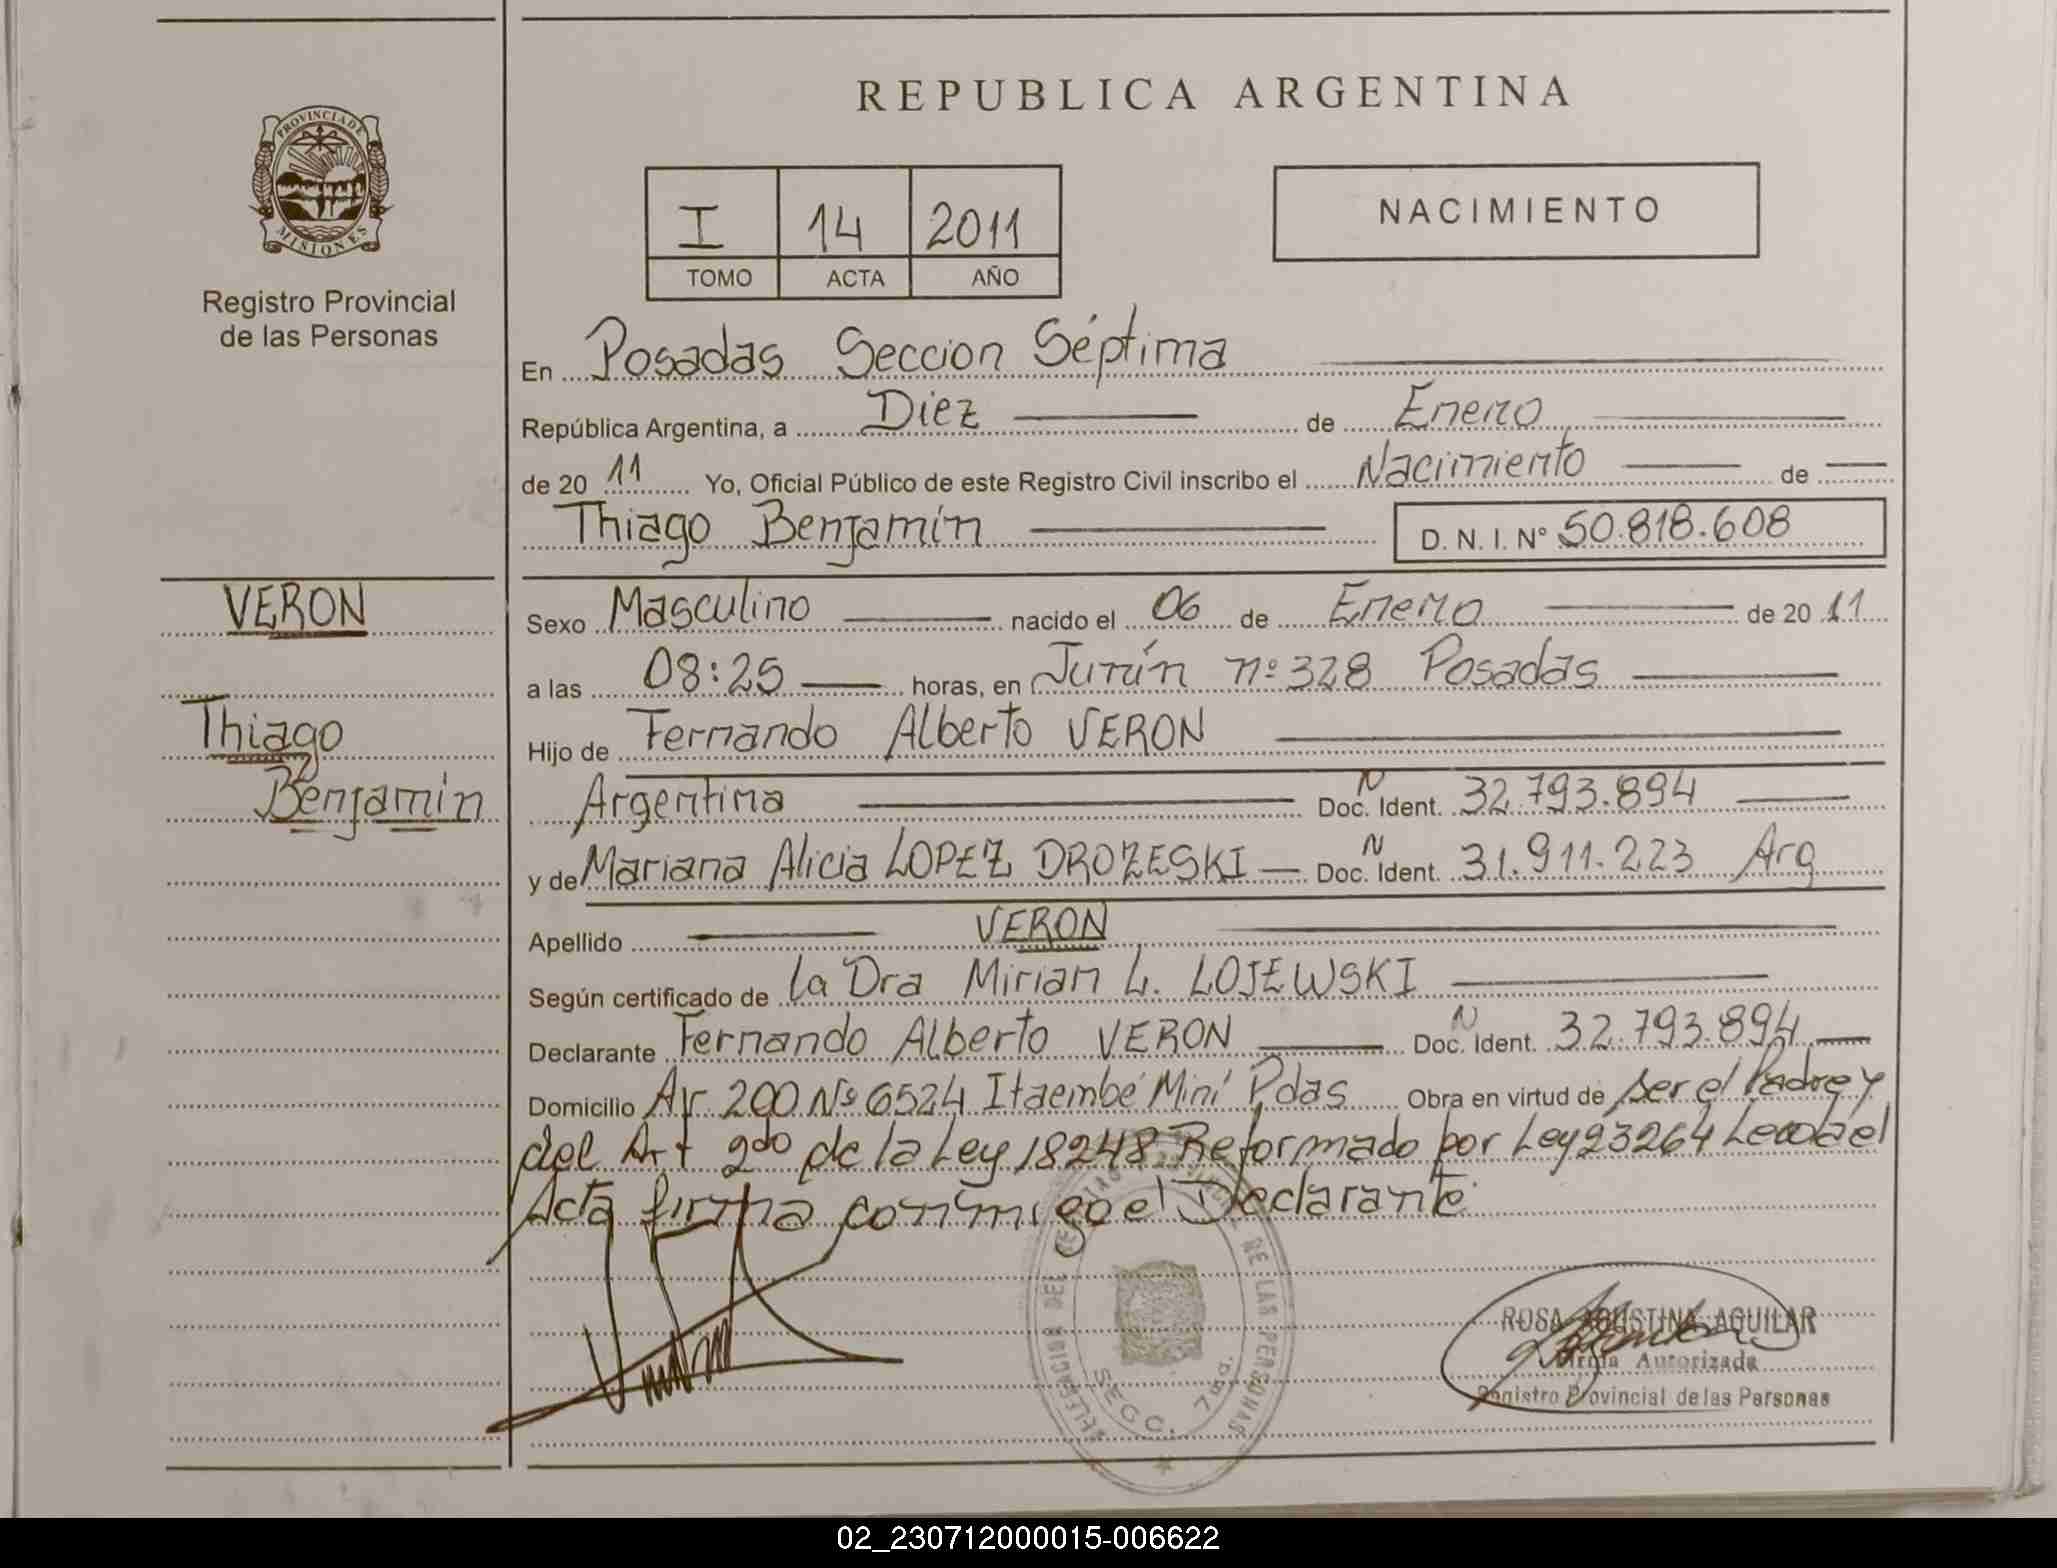 REPUBLICA ARGENTINA
PROVINCIA DE
MISIONES
Registro Provincial
de las Personas
I 14 2011
TOMO ACTA AÑO
NACIMIENTO
En Posadas Seccion Séptima
República Argentina, a Diez de Enero
de 20 11 Yo, Oficial Público de este Registro Civil inscribo el Nacimiento de
Thiago Benjamín D. N. I. Nº 50.818.608
VERON
Thiago
Benjamín
Sexo Masculino nacido el 06 de Enero de 20 11
a las 08:25 horas, en Junín nº 328 Posadas
Hijo de Fernando Alberto VERON
Argentina Doc. N Ident. 32.793.894
y de Mariana Alicia LOPEZ DROZESKI Doc. N Ident. 31.911.223 Arg
Apellido VERON
Según certificado de la Dra Mirian L. LOJEWSKI
Declarante Fernando Alberto VERON Doc. N Ident. 32.793.894
Domicilio Av 200 Nº 6524 Itaembé Miní Pdas Obra en virtud de ser el Padre y
del Art 2do de la Ley 18248 Reformado por Ley 23264 Leida el
Acta firma conmigo el Declarante
DELEGACION DEL REGISTRO PROVINCIAL DE LAS PERSONAS
SECC. 7ma.
ROSA AGUSTINA AGUILAR
Firma Autorizada
Registro Provincial de las Personas
02_230712000015-006622